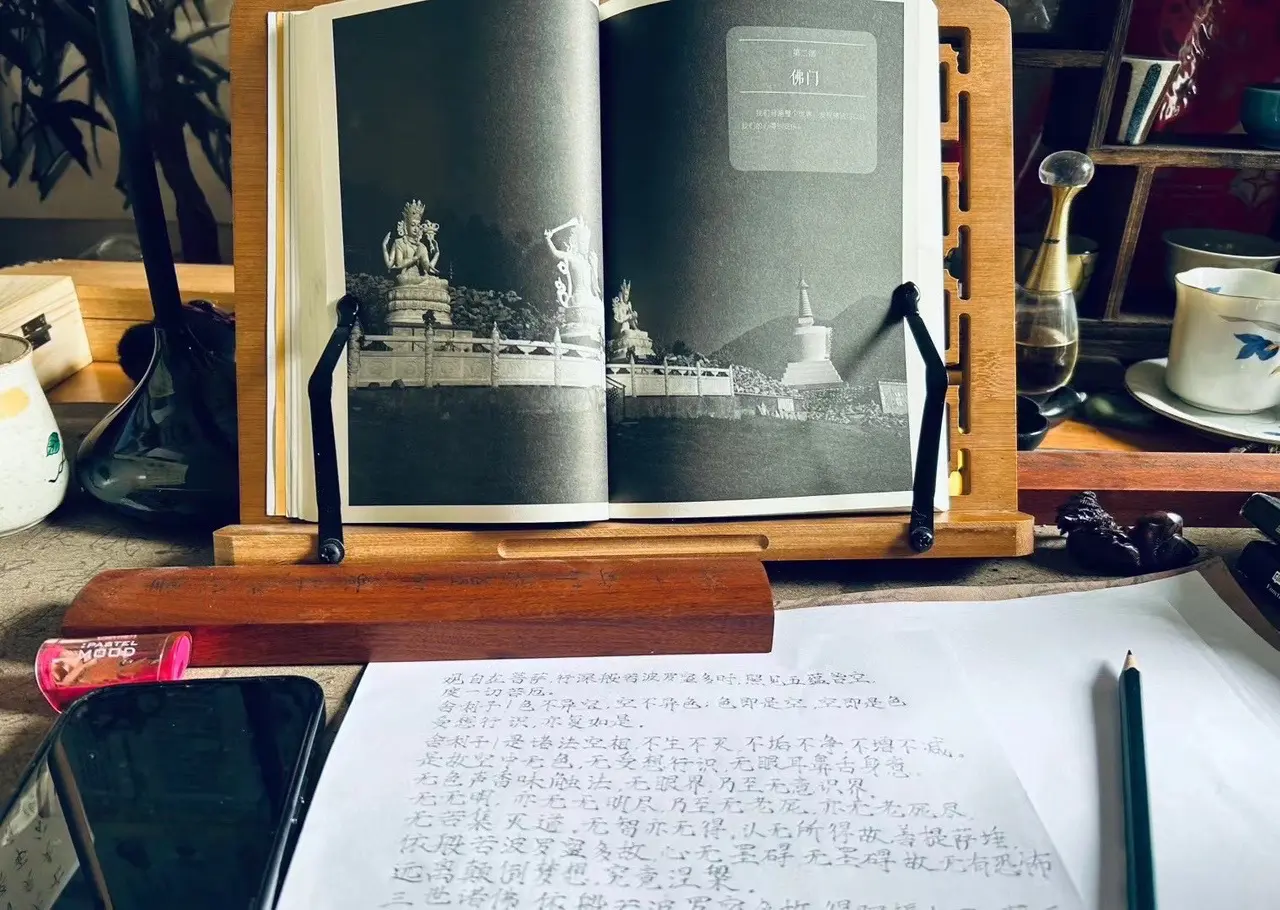 第二部
佛门
PASTEL
MOOD
观自在菩萨,行深般若波罗蜜多时,照见五蕴皆空,
度一切苦厄。
舍利子!色不异空,空不异色;色即是空,空即是色
受想行识,亦复如是.
舍利子!是诸法空相,不生不灭,不垢不净,不增不减。
是故空中无色,无受想行识,无眼耳鼻舌身意.
无色声香味触法,无眼界,乃至无意识界.
无无明,亦无无明尽,乃至无老死,亦无老死尽.
无苦集灭道,无智亦无得,以无所得故,菩提萨埵.
依般若波罗蜜多故,心无罣碍,无罣碍故,无有恐怖
远离颠倒梦想,究竟涅槃.
三世诸佛,依般若波罗蜜多故,得